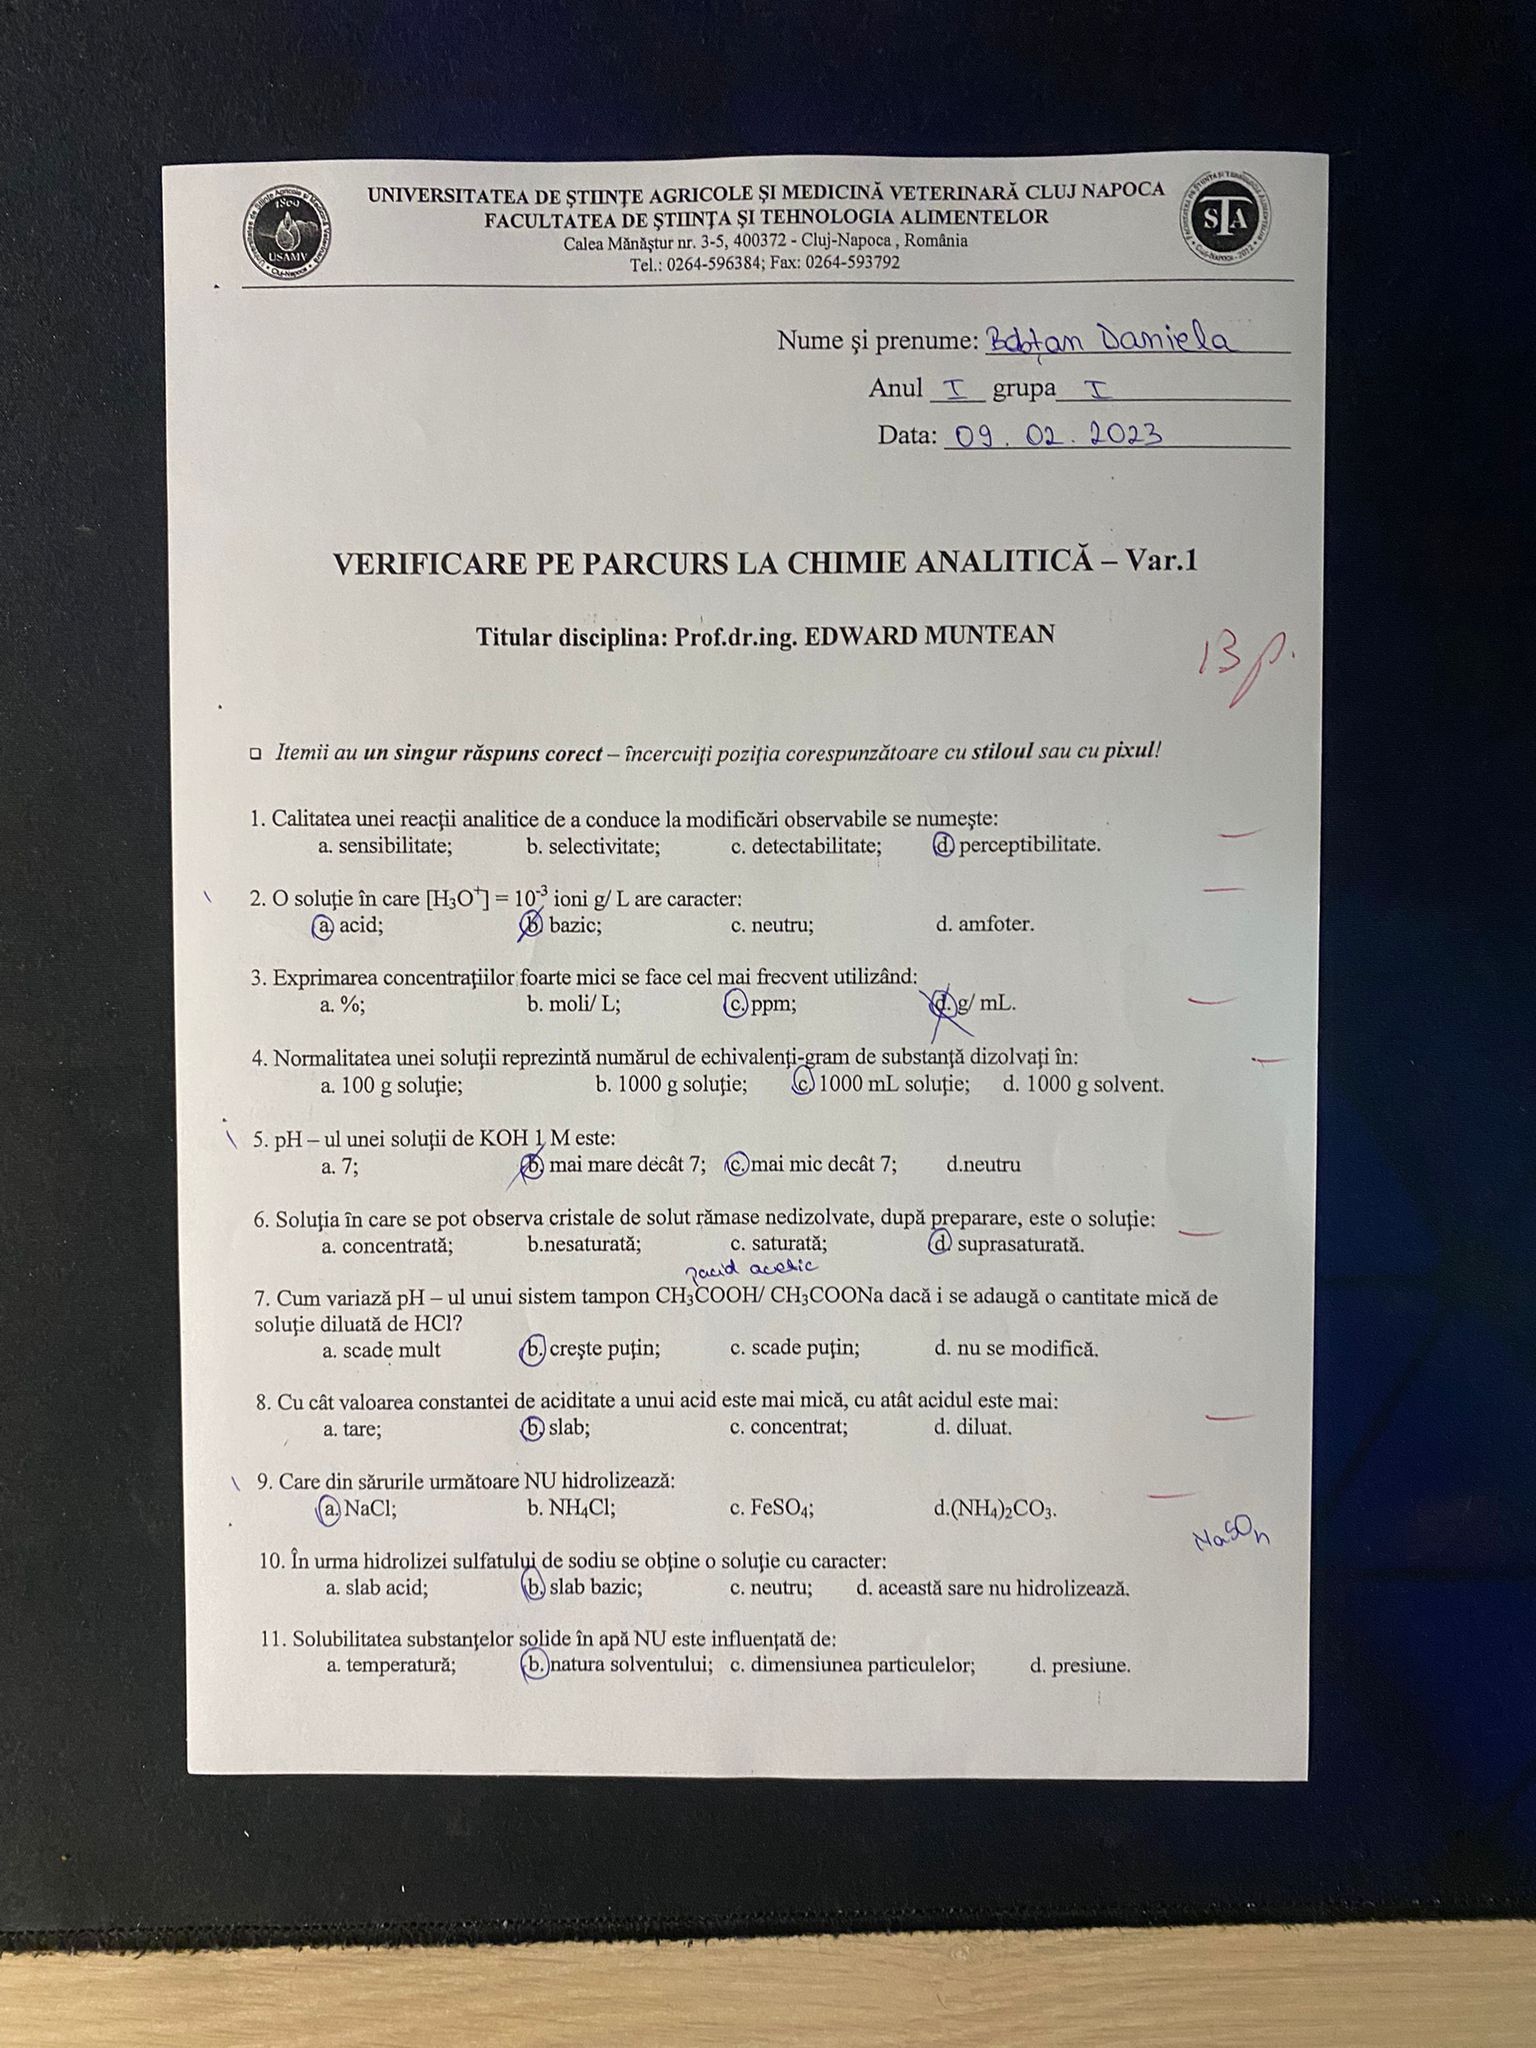 UNIVERSITATEA DE ŞTIINŢE AGRICOLE ŞI MEDICINĂ VETERINARĂ CLUJ NAPOCA
FACULTATEA DE ŞTIINŢA ŞI TEHNOLOGIA ALIMENTELOR
Calea Mănăştur nr. 3-5, 400372 - Cluj-Napoca , România
Tel.: 0264-596384; Fax: 0264-593792
1869
USAMV
STA
Nume şi prenume: Daniela
Anul I grupa I
Data: 09. 02. 2023
VERIFICARE PE PARCURS LA CHIMIE ANALITICĂ – Var.1
Titular disciplina: Prof.dr.ing. EDWARD MUNTEAN
13 p.
Itemii au un singur răspuns corect – încercuiţi poziţia corespunzătoare cu stiloul sau cu pixul!
1. Calitatea unei reacţii analitice de a conduce la modificări observabile se numeşte:
a. sensibilitate; b. selectivitate; c. detectabilitate; d. perceptibilitate.
2. O soluţie în care [H₃O⁺] = 10⁻³ ioni g/ L are caracter:
a. acid; b. bazic; c. neutru; d. amfoter.
3. Exprimarea concentraţiilor foarte mici se face cel mai frecvent utilizând:
a. %; b. moli/ L; c. ppm; d. g/ mL.
4. Normalitatea unei soluţii reprezintă numărul de echivalenţi-gram de substanţă dizolvaţi în:
a. 100 g soluţie; b. 1000 g soluţie; c. 1000 mL soluţie; d. 1000 g solvent.
5. pH – ul unei soluţii de KOH 1 M este:
a. 7; b. mai mare decât 7; c. mai mic decât 7; d.neutru
6. Soluţia în care se pot observa cristale de solut rămase nedizolvate, după preparare, este o soluţie:
a. concentrată; b.nesaturată; c. saturată; d. suprasaturată.
acid acetic
7. Cum variază pH – ul unui sistem tampon CH₃COOH/ CH₃COONa dacă i se adaugă o cantitate mică de
soluţie diluată de HCl?
a. scade mult b. creşte puţin; c. scade puţin; d. nu se modifică.
8. Cu cât valoarea constantei de aciditate a unui acid este mai mică, cu atât acidul este mai:
a. tare; b. slab; c. concentrat; d. diluat.
9. Care din sărurile următoare NU hidrolizează:
a. NaCl; b. NH₄Cl; c. FeSO₄; d.(NH₄)₂CO₃.
10. În urma hidrolizei sulfatului de sodiu se obţine o soluţie cu caracter:
a. slab acid; b. slab bazic; c. neutru; d. această sare nu hidrolizează.
11. Solubilitatea substanţelor solide în apă NU este influenţată de:
a. temperatură; b. natura solventului; c. dimensiunea particulelor; d. presiune.